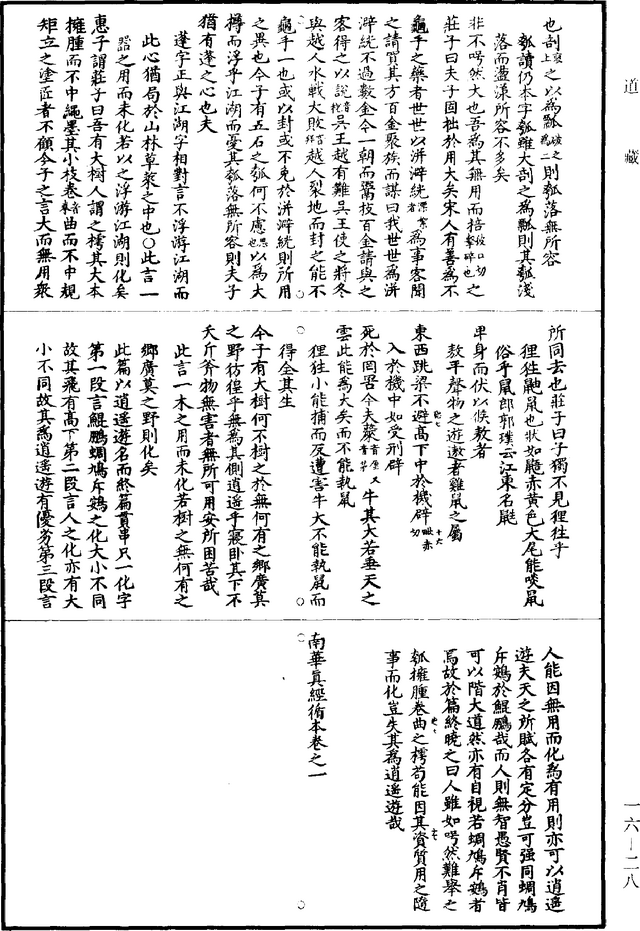 道藏
也剖之以為瓢破之為二則瓠落無所容
瓠讀仍本字瓠雖大剖之為瓢則其瓠淺
落而盪漾所容不多矣
非不呺然大也吾為其無用而掊彼口切擊碎也之
莊子曰夫子固拙於用大矣宋人有善為不
龜手之藥者世世以洴澼絖漂絮者為事客聞
之請買其方百金聚族而謀曰我世世為洴
澼絖不過數金今一朝而鬻技百金請與之
客得之以說音稅吳王越有難吳王使之將冬
與越人水戰大敗音拜越人裂地而封之能不
龜手一也或以封或不免於洴澼絖則所用
之異也今子有五石之瓠何不慮思也以為大
樽而浮乎江湖而憂其瓠落無所容則夫子
猶有蓬之心也夫
蓬字正與江湖字相對言不浮游江湖而
此心猶局於山林草萊之中也○此言一
噐之用而未化若以之浮游江湖則化矣
惠子謂莊子曰吾有大樹人謂之樗其大本
擁腫而不中繩墨其小枝卷音拳曲而不中規
矩立之塗匠者不顧今子之言大而無用衆
所同去也莊子曰子獨不見狸狌乎
狸狌鼬鼠也狀如鼬赤黃色大尾能啖鼠
俗乎鼠郎郭璞云江東名鼪
卑身而伏以候敖者
敖乎聲物之遊遨者雞鼠之屬
東西跳梁不避高下中於機辟毗赤切
入於機中如受刑辟
死於罔罟今夫斄牛其大若垂天之
雲此能為大矣而不能執鼠
狸狌小能捕而反遭害牛大不能執鼠而
得全其生
今子有大樹何不樹之於無何有之鄉廣莫
之野彷徨乎無為其側逍遙乎寢卧其下不
夭斤斧物無害者無所可用安所困苦哉
此言一木之用而未化若樹之無何有之
鄉廣莫之野則化矣
此篇以逍遙遊名而終篇貫串只一化字
第一段言鯤鵬蜩鳩斥鴳之化大小不同
故其飛有高下第二段言人之化亦有大
小不同故其為逍遙遊有優劣第三段言
人能因無用而化為有用則亦可以逍遙
遊夫天之所賦各有定分豈可強同蜩鳩
斥鴳於鯤鵬哉而人則無智愚賢不肖皆
可以階大道然亦有自視若蜩鳩斥鴳者
焉故於篇終曉之曰人雖如呺然難舉之
瓠擁腫卷曲之樗苟能因其資質用之隨
事而化豈失其為逍遙遊哉
南華真經循本卷之一
一六-二八